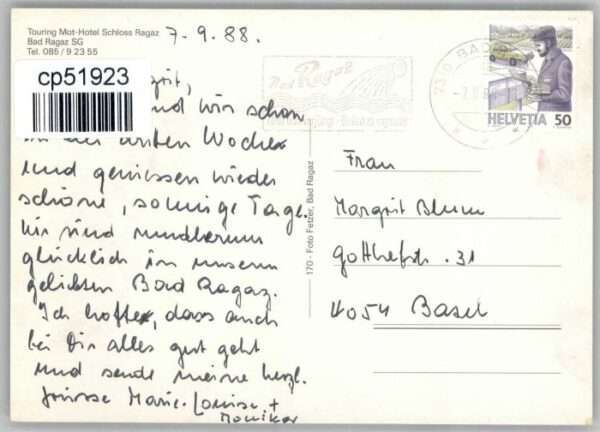 Touring Mot-Hotel Schloss Ragaz
Bad Ragaz SG
Tel. 085 / 9 23 55
7.9.88.
cp51923
wir schon
Woche
und geniessen wieder
schöne, sonnige Tage.
Wir sind rundherum
glücklich in unserm
geliebten Bad Ragaz.
Ich hoffe, dass auch
bei Dir alles gut geht
und sende meine herzl.
Grüsse Marie-Louise +
Monika
170 - Foto Fetzer, Bad Ragaz
Bad Ragaz
7310 BAD
HELVETIA 50
Frau
Margrit Blum
Gotthelfstr. 31
4054 Basel